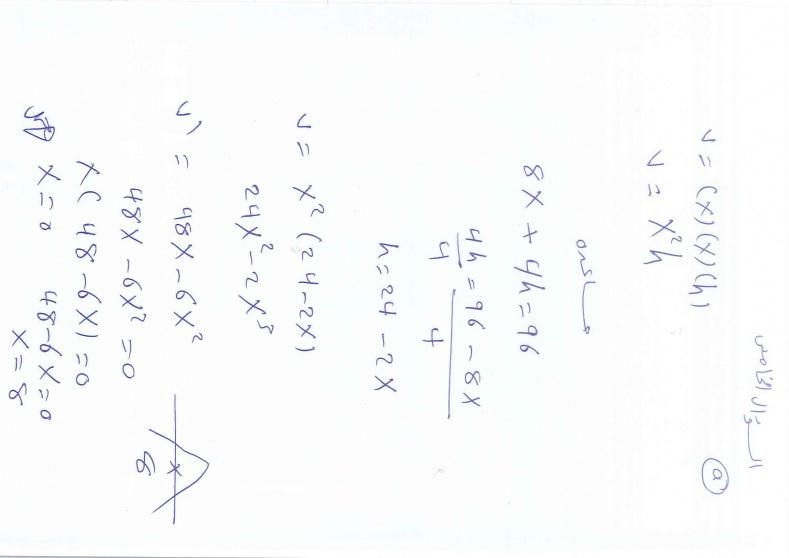 السؤال الخامس
(a)
v = (x)(x)(h)
v = x²h
مساعدة
8x + 4h = 96
4h/4 = (96 - 8x)/4
h = 24 - 2x
v = x²(24 - 2x)
24x² - 2x³
v' = 48x - 6x²
48x - 6x² = 0
x(48 - 6x) = 0
x = 0   48 - 6x = 0
x = 8
x
8